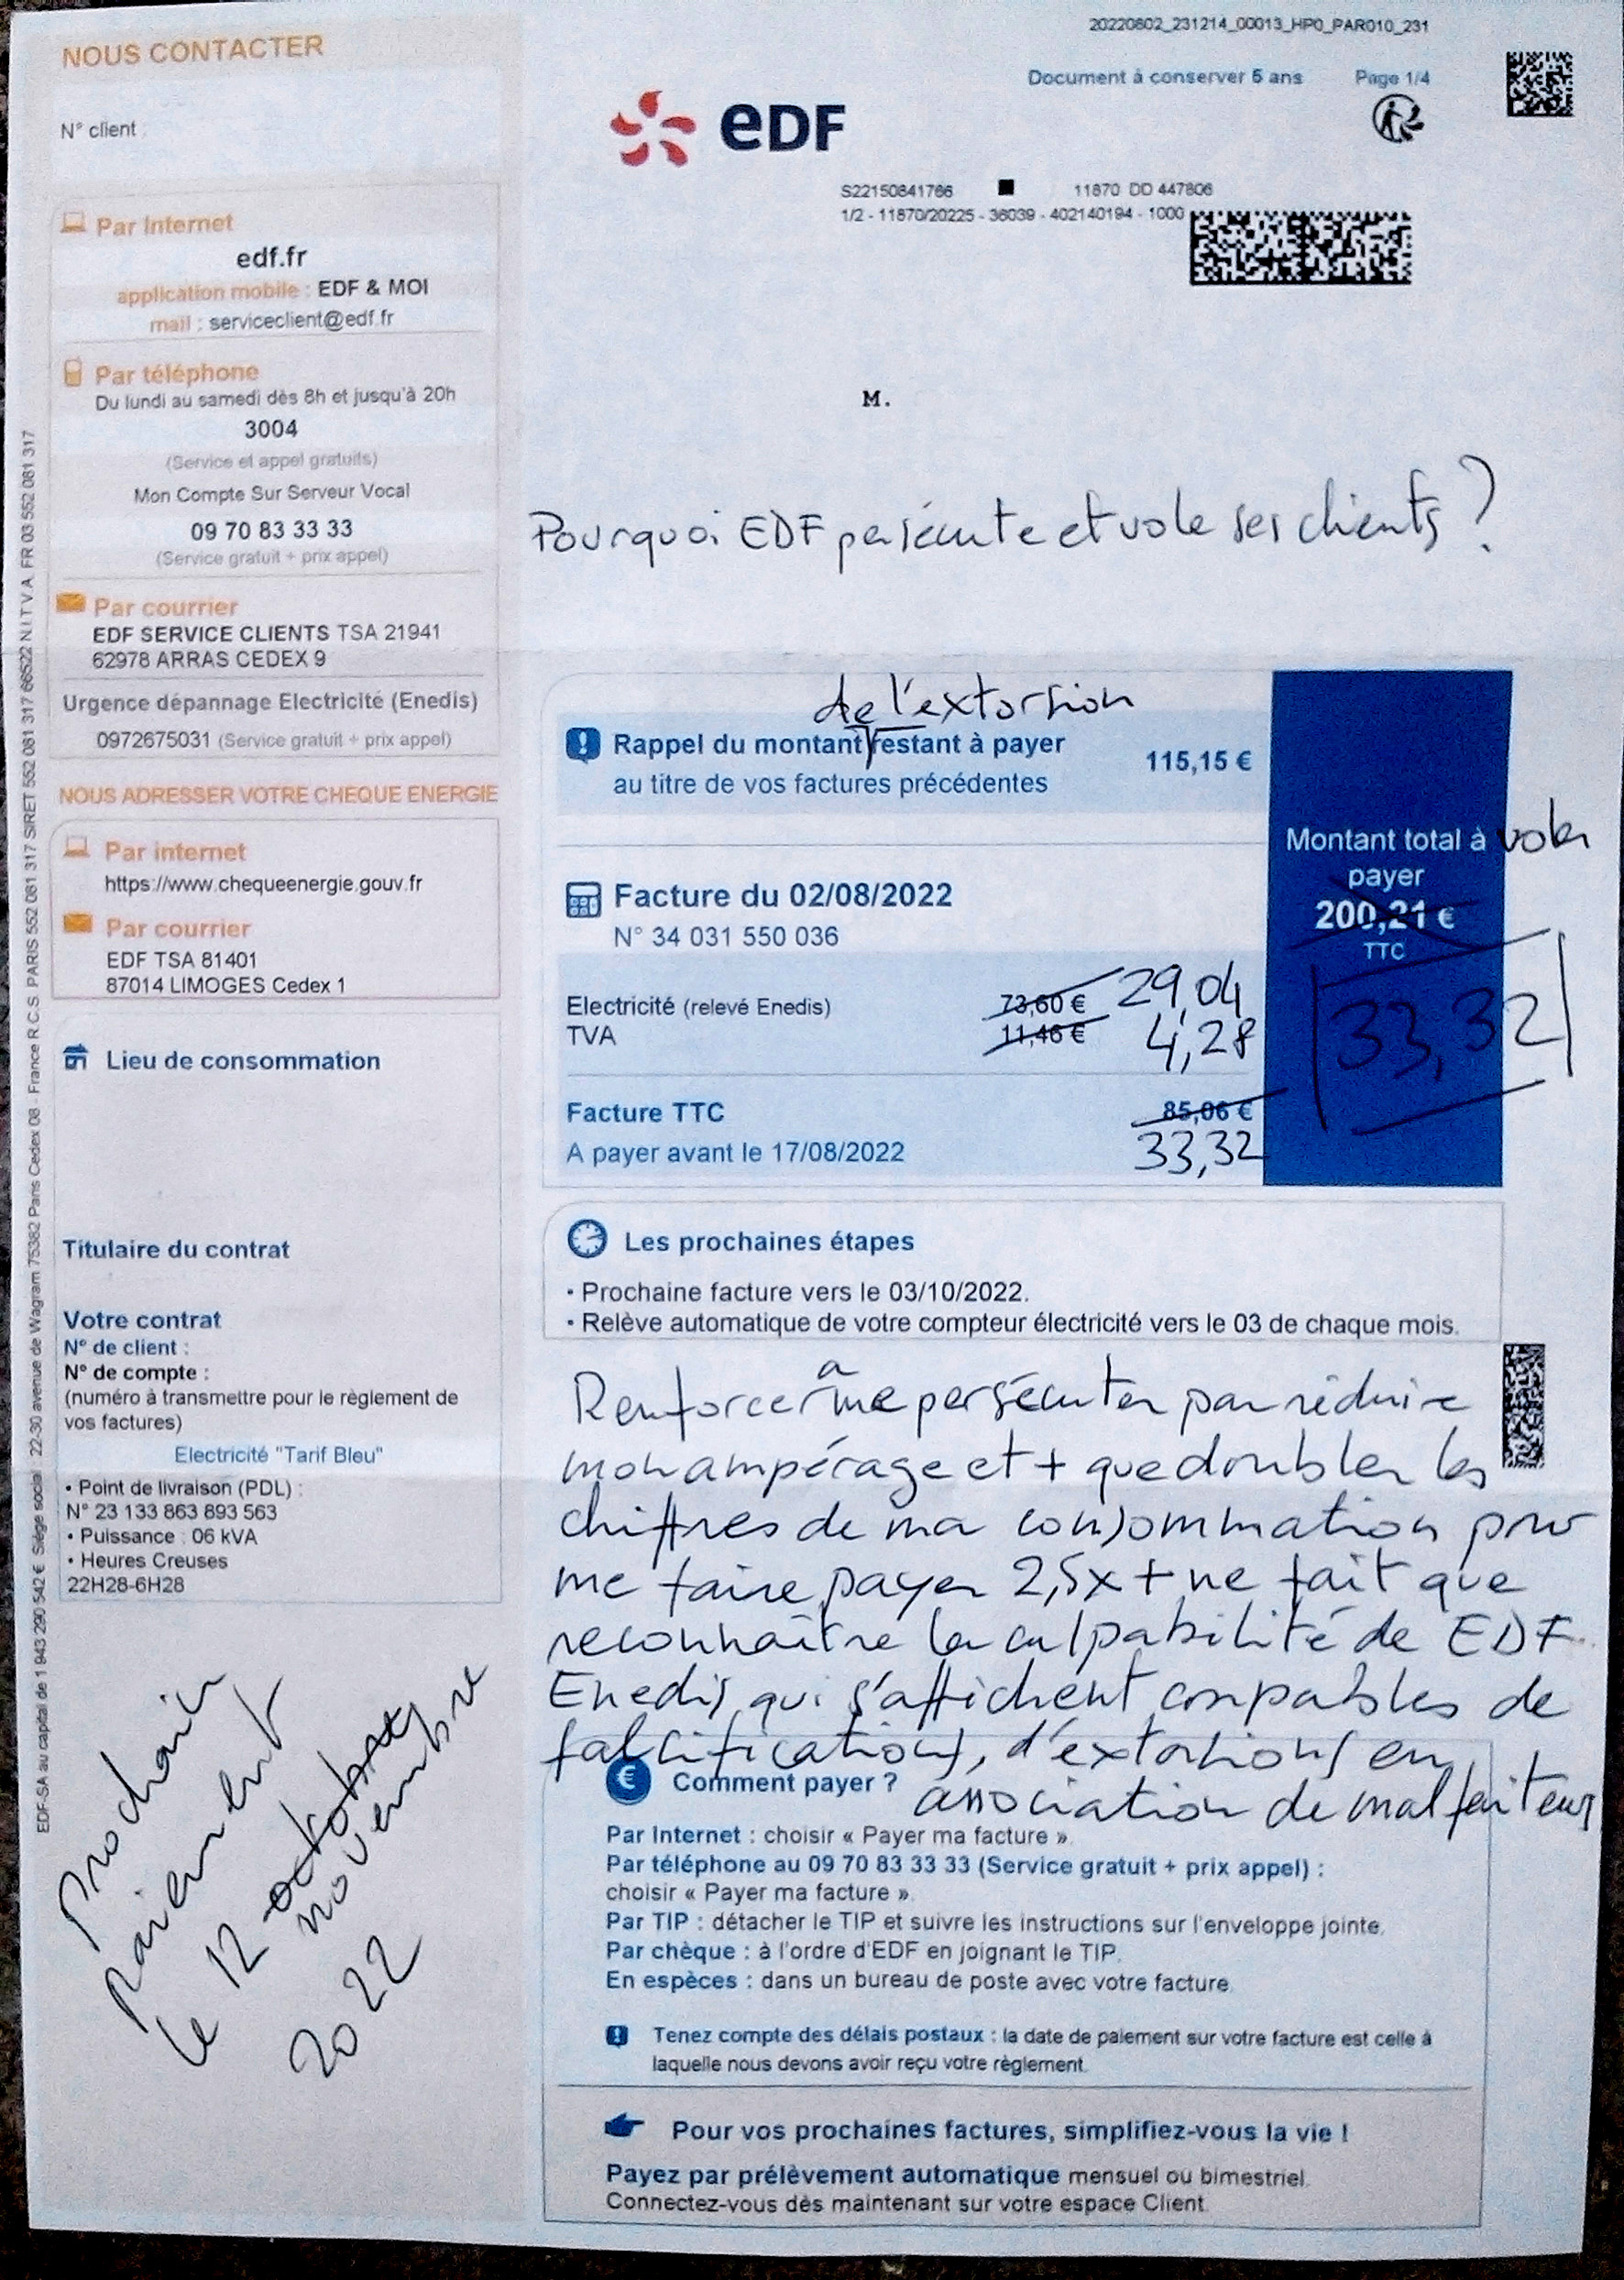 20220802_231214_00013_HP0_PAR010_231
Document à conserver 5 ans Page 1/4
NOUS CONTACTER
N° client :
Par Internet
edf.fr
application mobile : EDF & MOI
mail : serviceclient@edf.fr
Par téléphone
Du lundi au samedi dès 8h et jusqu'à 20h
3004
(Service et appel gratuits)
Mon Compte Sur Serveur Vocal
09 70 83 33 33
(Service gratuit + prix appel)
Par courrier
EDF SERVICE CLIENTS TSA 21941
62978 ARRAS CEDEX 9
Urgence dépannage Electricité (Enedis)
0972675031 (Service gratuit + prix appel)
NOUS ADRESSER VOTRE CHEQUE ENERGIE
Par internet
https://www.chequeenergie.gouv.fr
Par courrier
EDF TSA 81401
87014 LIMOGES Cedex 1
Lieu de consommation
Titulaire du contrat
Votre contrat
N° de client :
N° de compte :
(numéro à transmettre pour le règlement de
vos factures)
Electricité "Tarif Bleu"
• Point de livraison (PDL) :
N° 23 133 863 893 563
• Puissance : 06 kVA
• Heures Creuses
22H28-6H28
prochain
paiement
le 12 octobre
novembre
2022
EDF-SA au capital de 1 943 290 542 € Siège social 22-30 avenue de Wagram 75382 Paris Cedex 08 - France R.C.S. PARIS 552 081 317 SIRET 552 081 317 66522 N.I T.V.A. FR 03 552 081 317
eDF
S22150841766 11870 DD 447806
1/2 - 11870/20225 - 36039 - 402140194 - 1000
M.
Pourquoi EDF persécute et vole ses clients ?
de l'extorsion
Rappel du montant restant à payer 115,15 €
au titre de vos factures précédentes
Montant total à voler
payer
200,21 €
TTC
33,32
Facture du 02/08/2022
N° 34 031 550 036
Electricité (relevé Enedis) 73,60 € 29,04
TVA 11,46 € 4,28
Facture TTC 85,06 €
A payer avant le 17/08/2022 33,32
Les prochaines étapes
• Prochaine facture vers le 03/10/2022.
• Relève automatique de votre compteur électricité vers le 03 de chaque mois.
Renforcer à me persécuter par réduire
mon ampérage et + que doubler les
chiffres de ma consommation pour
me faire payer 2,5x + ne fait que
reconnaître la culpabilité de EDF
Enedis qui s'affichent coupables de
falcifications, d'extorsions en
association de malfaiteurs
Comment payer ?
Par Internet : choisir « Payer ma facture ».
Par téléphone au 09 70 83 33 33 (Service gratuit + prix appel) :
choisir « Payer ma facture ».
Par TIP : détacher le TIP et suivre les instructions sur l'enveloppe jointe.
Par chèque : à l'ordre d'EDF en joignant le TIP.
En espèces : dans un bureau de poste avec votre facture.
Tenez compte des délais postaux : la date de paiement sur votre facture est celle à
laquelle nous devons avoir reçu votre règlement.
Pour vos prochaines factures, simplifiez-vous la vie !
Payez par prélèvement automatique mensuel ou bimestriel.
Connectez-vous dès maintenant sur votre espace Client.